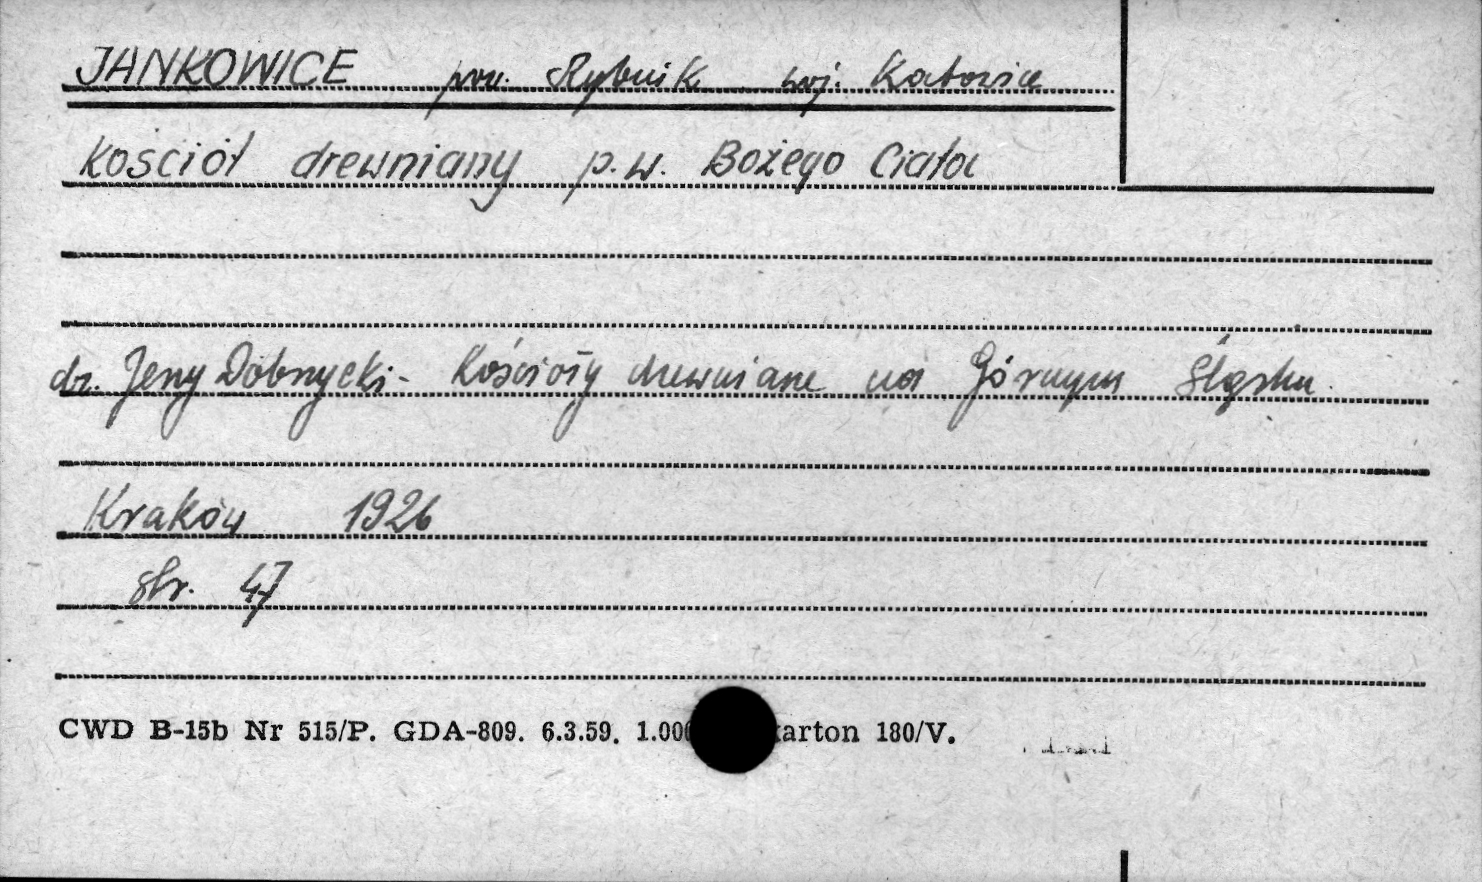 JANKOWICE pow. Rybnik woj. Katowice
Kościół drewniany p.w. Bożego Ciała
dr. Jerzy Dobrzycki - Kościoły drewniane na Górnym Śląsku.
Kraków 1926
str. 47
CWD B-15b Nr 515/P. GDA-809. 6.3.59. 1.000 karton 180/V.